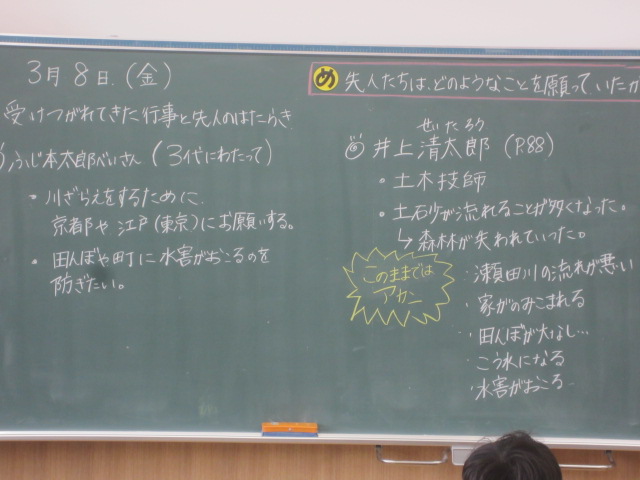 3月8日.(金)
受けつがれてきた行事と先人のはたらき
ふじ本太郎べいさん(3代にわたって)
・川ざらえをするために、
京都や江戸(東京)にお願いする。
・田んぼや町に水害がおこるのを
防ぎたい。
め 先人たちは、どのようなことを願っていたか
せいたろう
◎井上清太郎(P.88)
・土木技師
・土石少が流れることが多くなった。
↳森林が失われていった。
このままでは
アカン
・瀬田川の流れが悪い
・家がのみこまれる
・田んぼが大なし…
・こう水になる
・水害がおころ